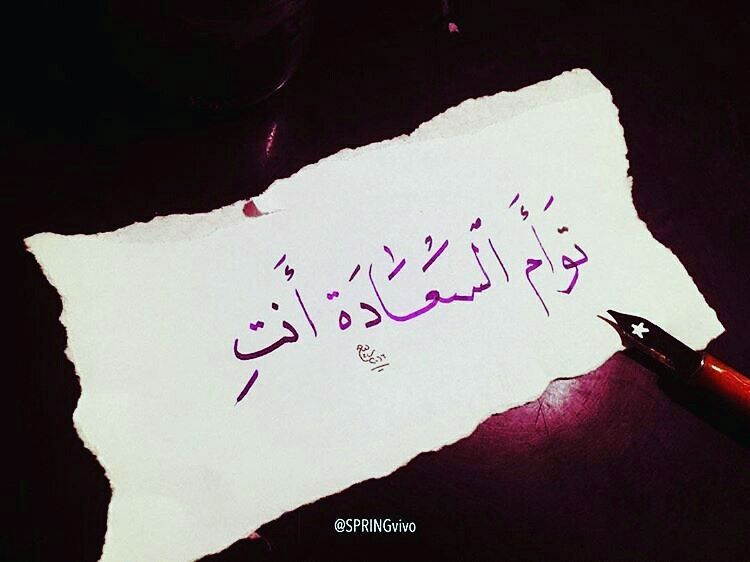 تَوأَم السَّعَادَة أَنتِ
@SPRINGvivo